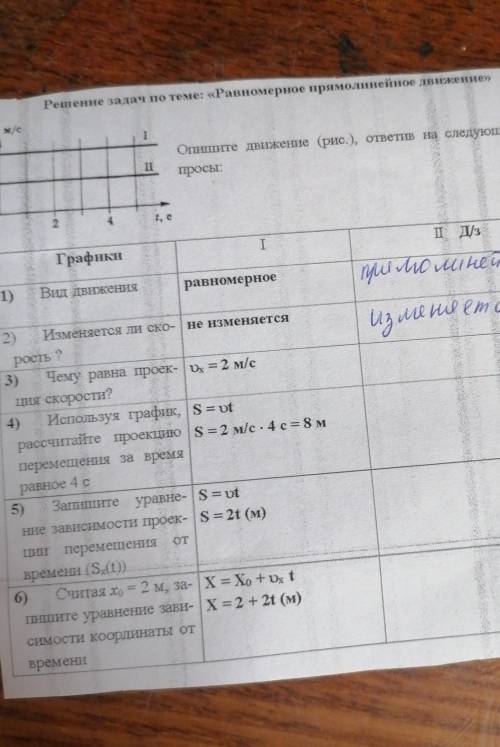 Решение задач по теме: «Равномерное прямолинейное движение»
м/с
I
II
2
4
t, с
Опишите движение (рис.), ответив на следующ
просы:
Графики
I
II Д/з
1) Вид движения
равномерное
прямолиней
2) Изменяется ли ско-
рость ?
не изменяется
изменяетс
3) Чему равна проек-
ция скорости?
υx = 2 м/с
4) Используя график,
рассчитайте проекцию
перемещения за время
равное 4 с
S = υt
S = 2 м/с · 4 с = 8 м
5) Запишите уравне-
ние зависимости проек-
ции перемещения от
времени (Sx(t))
S = υt
S = 2t (м)
6) Считая x0 = 2 м, за-
пишите уравнение зави-
симости координаты от
времени
X = X0 + υx t
X = 2 + 2t (м)